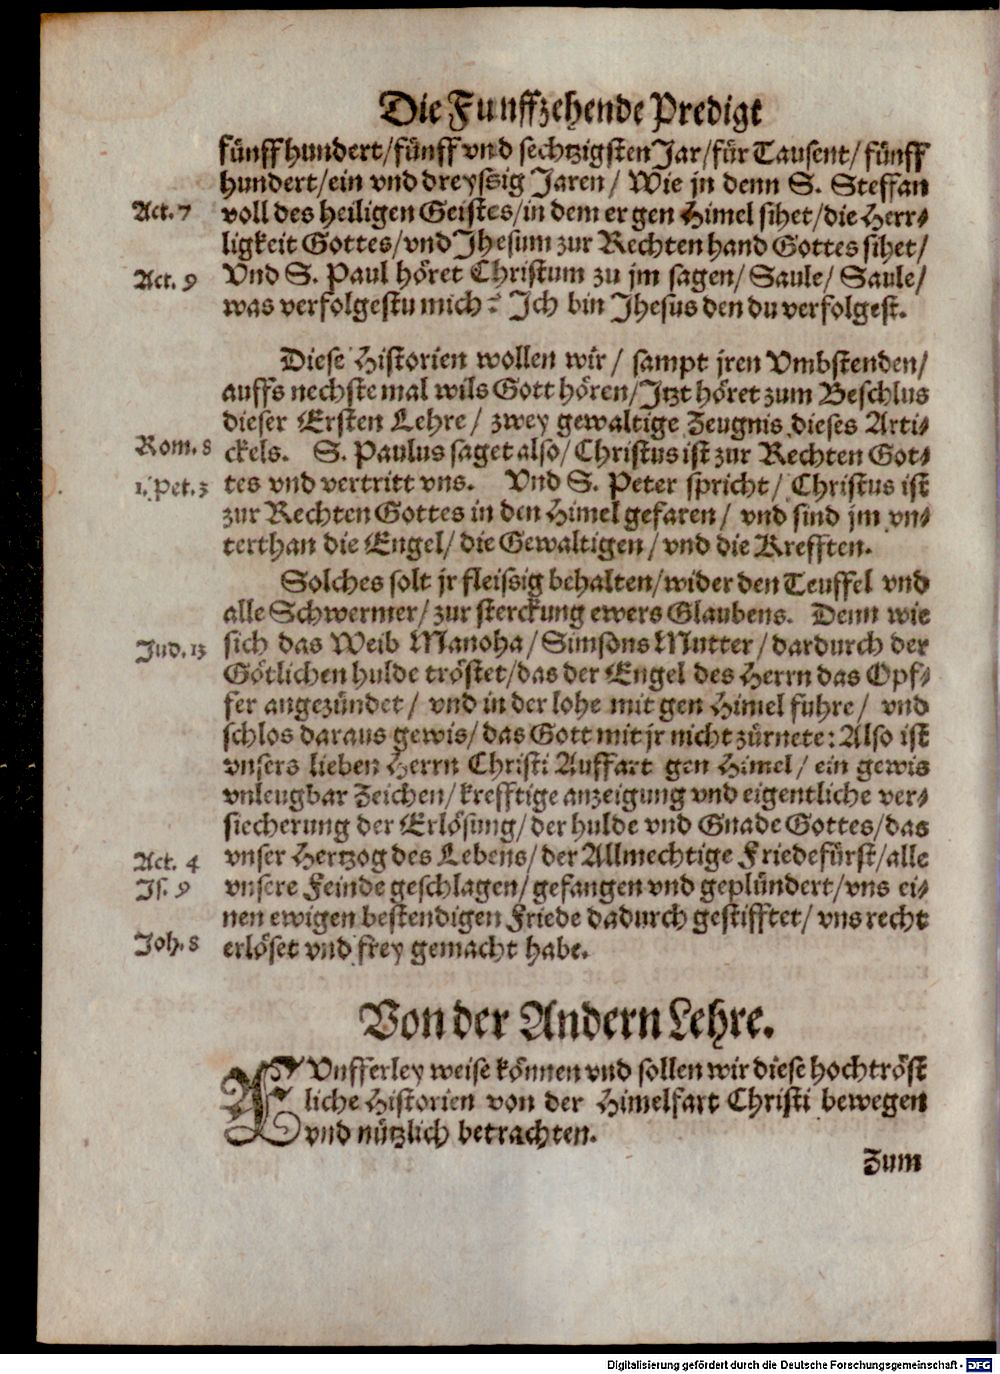 Die Funffzehende Predigt
fünffhundert/fünff vnd sechtzigsten Jar/für Tausent/fünff
hundert/ein vnd dreyssig Jaren/ Wie jn denn S. Steffan
Act. 7 voll des heiligen Geistes/in dem er gen Himel sihet/die Herr-
ligkeit Gottes/vnd Jhesum zur Rechten hand Gottes sihet/
Act. 9 Vnd S. Paul höret Christum zu jm sagen/ Saule/ Saule/
was verfolgestu mich? Ich bin Jhesus den du verfolgest.
Diese Historien wollen wir/ sampt jren Vmbstenden/
auffs nechste mal wils Gott hören/Jtzt höret zum Beschlus
dieser Ersten Lehre/ zwey gewaltige Zeugnis dieses Arti-
Rom. 8 ckels. S. Paulus saget also/ Christus ist zur Rechten Got-
1. Pet. 3 tes vnd vertritt vns. Vnd S. Peter spricht/ Christus ist
zur Rechten Gottes in den Himel gefaren/ vnd sind jm vn-
terthan die Engel/ die Gewaltigen/ vnd die Krefften.
Solches solt jr fleissig behalten/wider den Teuffel vnd
alle Schwermer/ zur sterckung ewers Glaubens. Denn wie
Jud. 13 sich das Weib Manoha/ Simsons Mutter/ dardurch der
Götlichen hulde tröstet/das der Engel des Herrn das Opf-
fer angezündet/ vnd in der lohe mit gen Himel fuhre/ vnd
schlos daraus gewis/ das Gott mit jr nicht zürnete: Also ist
vnsers lieben Herrn Christi Auffart gen Himel/ ein gewis
vnleugbar Zeichen/ krefftige anzeigung vnd eigentliche ver-
siecherung der Erlösung/ der hulde vnd Gnade Gottes/das
Act. 4 vnser Hertzog des Lebens/ der Allmechtige Friedefürst/alle
Js. 9 vnsere Feinde geschlagen/ gefangen vnd geplündert/ vns ei-
nen ewigen bestendigen Friede dadurch gestifftet/ vns recht
Joh. 8 erlöset vnd frey gemacht habe.
Von der Andern Lehre.
AVufferley weise können vnd sollen wir diese hochtröst
liche Historien von der Himelfart Christi bewegen
vnd nützlich betrachten.
Zum
Digitalisierung gefördert durch die Deutsche Forschungsgemeinschaft - DFG